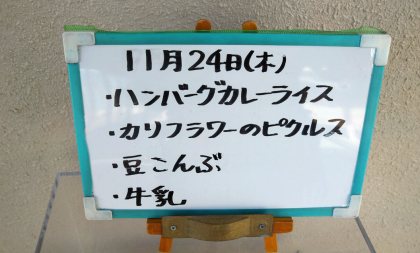 11月24日(木)
・ハンバーグカレーライス
・カリフラワーのピクルス
・豆こんぶ
・牛乳